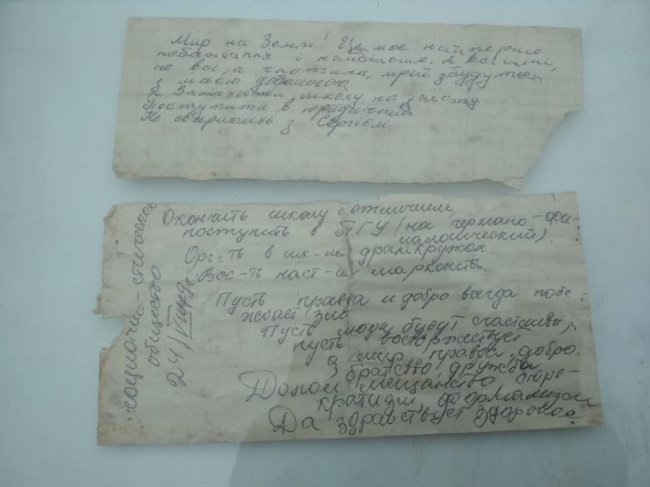 Мир на Землі! Це моє найперше
побажання й найбільше. А всі мрії,
не всі, а частина, мрій збудуться
з моєю допомогою
Закінчити школу на
Поступити в юридичний
Не сваритись з Сергієм.
Окончить школу с отличием,
поступить в ПГУ (на германо-фи-
лологический).
Орг-ть в шк-ле драмкружок
Вос-ть наст-их марксистов
Пусть правда и добро всегда побе-
ждает зло.
Пусть люди будут счастливы,
пусть восторжествует
мир, правда, добро,
братство, дружба
Долой мещанство, бюро-
кратизм, формализм
Да здравствует здоровое
социалис-стическое
общество
24/